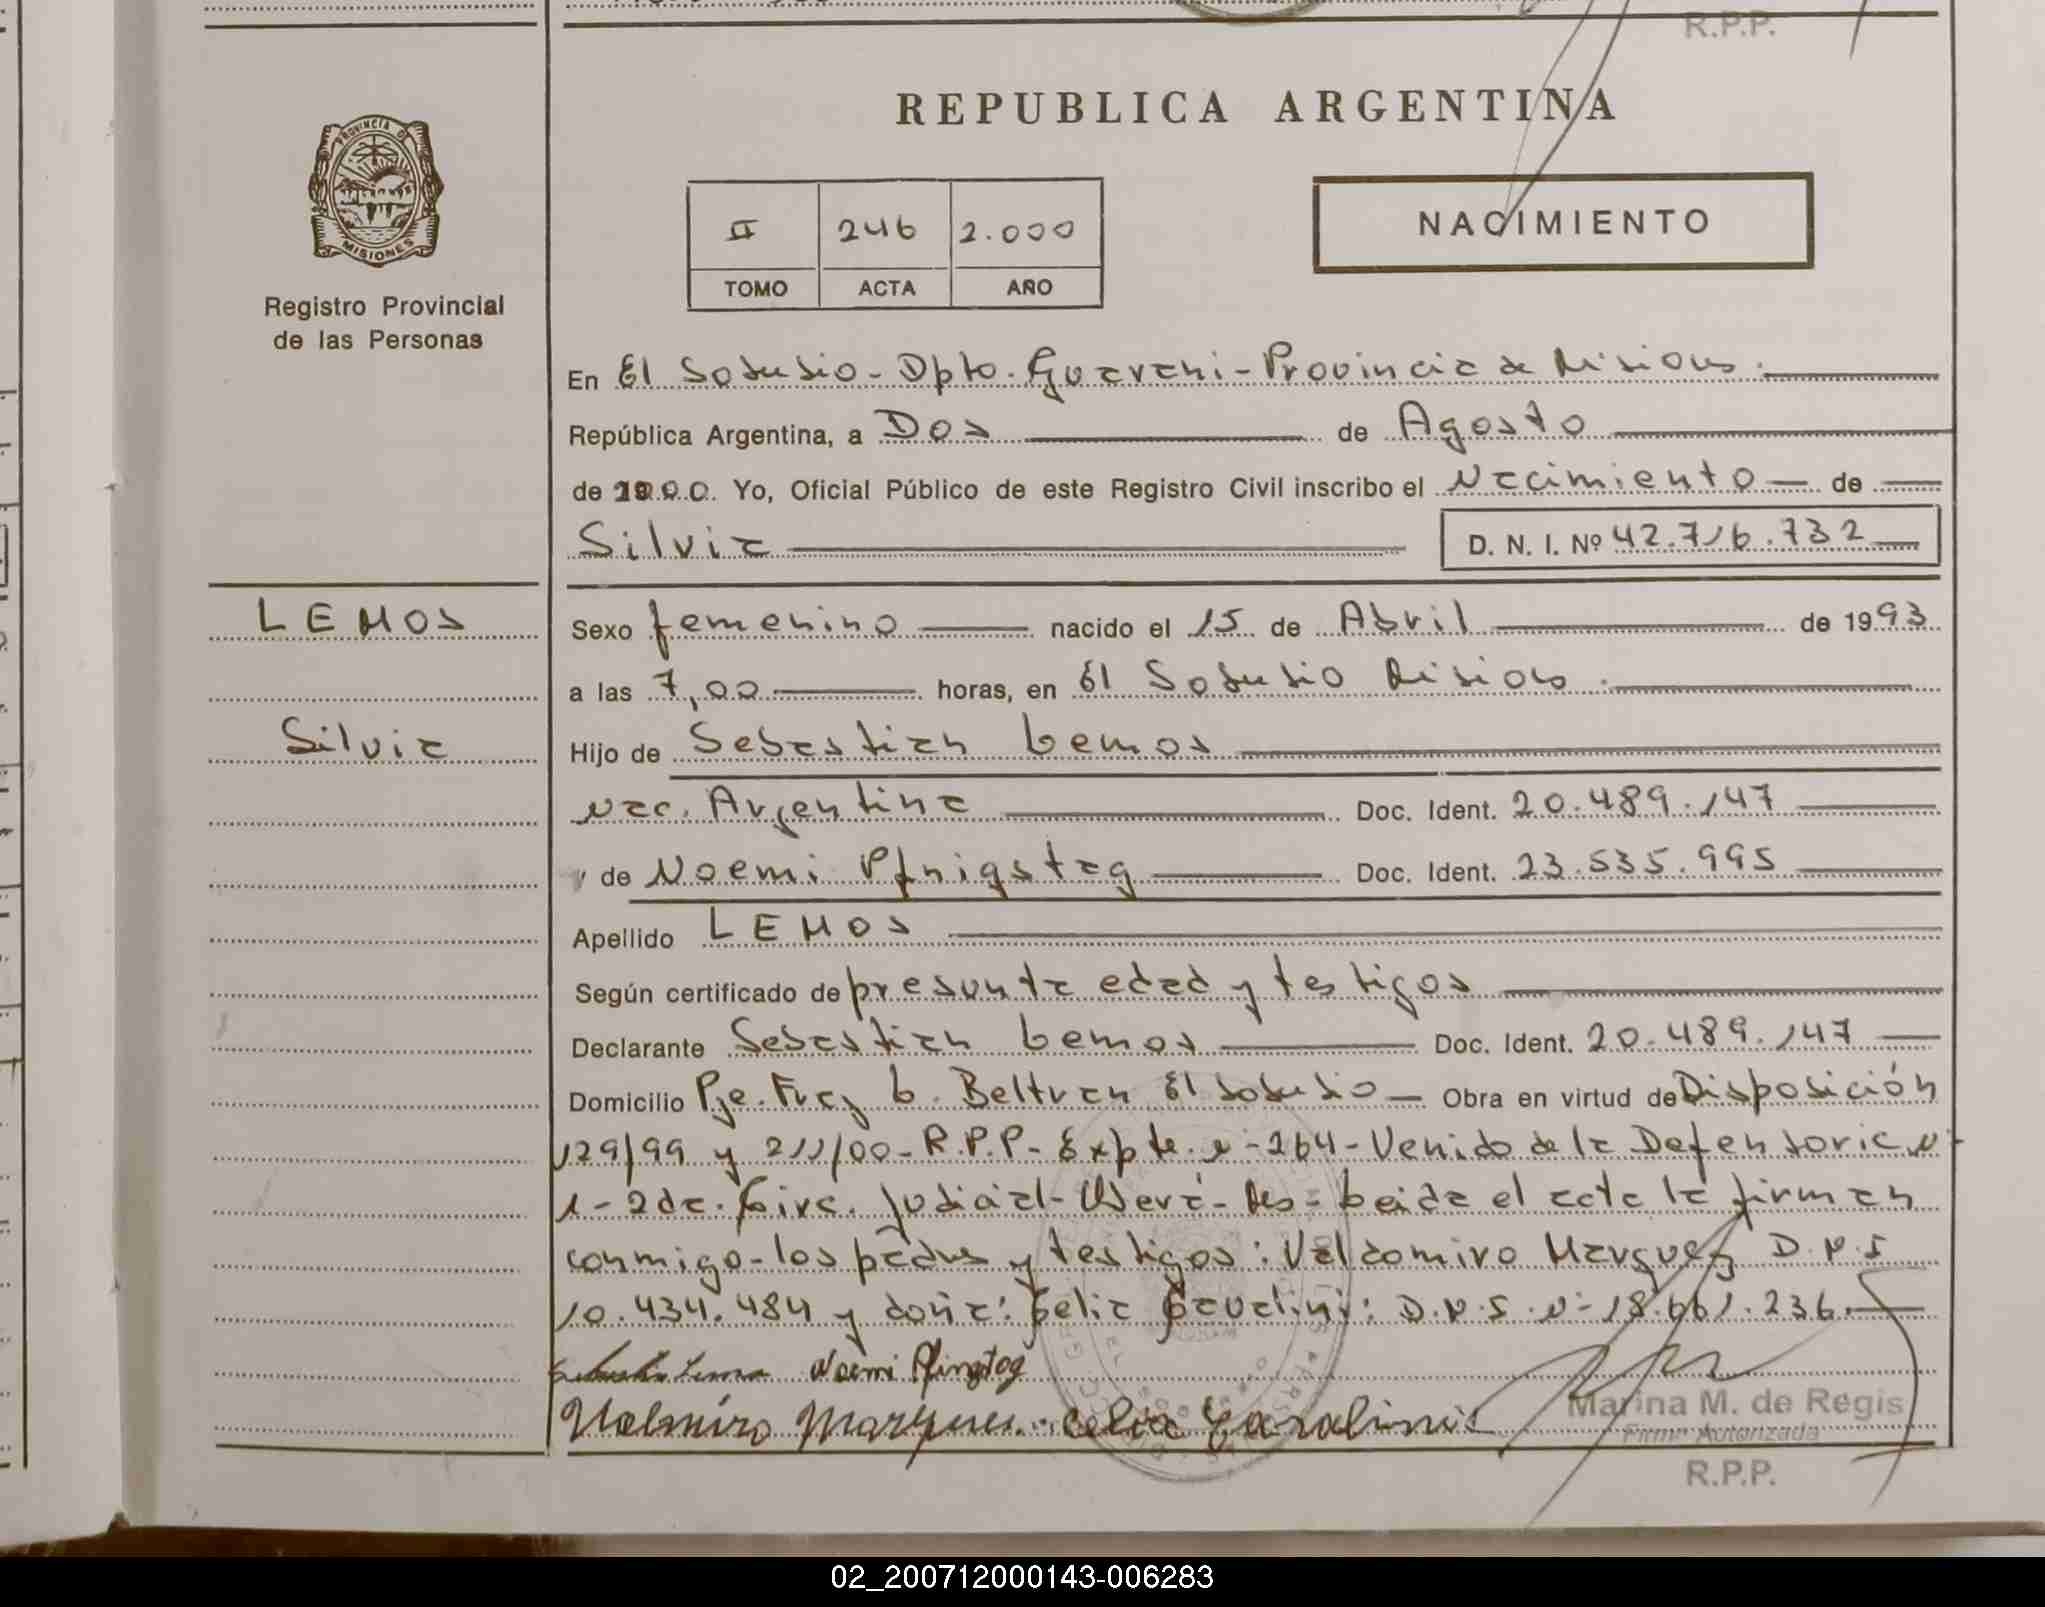 R.P.P.
REPUBLICA ARGENTINA
PROVINCIA DE
MISIONES
Registro Provincial
de las Personas
II 246 2.000
TOMO ACTA AÑO
NACIMIENTO
En El Soberbio - Dpto. Guarani - Provincia de Misiones.
República Argentina, a Dos de Agosto
de 2000. Yo, Oficial Público de este Registro Civil inscribo el Nacimiento de
Silvia D. N. I. Nº 42.716.732
LEMOS
Silvia
Sexo femenino nacido el 15 de Abril de 1993
a las 7,00 horas, en El Soberbio Misiones.
Hijo de Sebastian Lemos
Nac. Argentina Doc. Ident. 20.489.147
y de Noemi Pfnigstag Doc. Ident. 23.535.995
Apellido LEMOS
Según certificado de presunta edad y testigos
Declarante Sebastian Lemos Doc. Ident. 20.489.147
Domicilio Pje. Fray L. Beltran El Soberbio - Obra en virtud de Disposición
129/99 y 211/00 - R.P.P - Expte. N - 264 - Venido de la Defensoria N-
1 - 2da. Circ. Judicial - Oberá - Mnes - Leida el acta la firman
conmigo - los padres y testigos: Valdomiro Marquez D.N.I
10.434.484 y doña: Celia Cavalini: D.N.I. N- 18.661.236.
Noemi Pfingstag
Valmiro Marques. Celia Cavalini
Marina M. de Regis
Firma Autorizada
R.P.P.
02_200712000143-006283